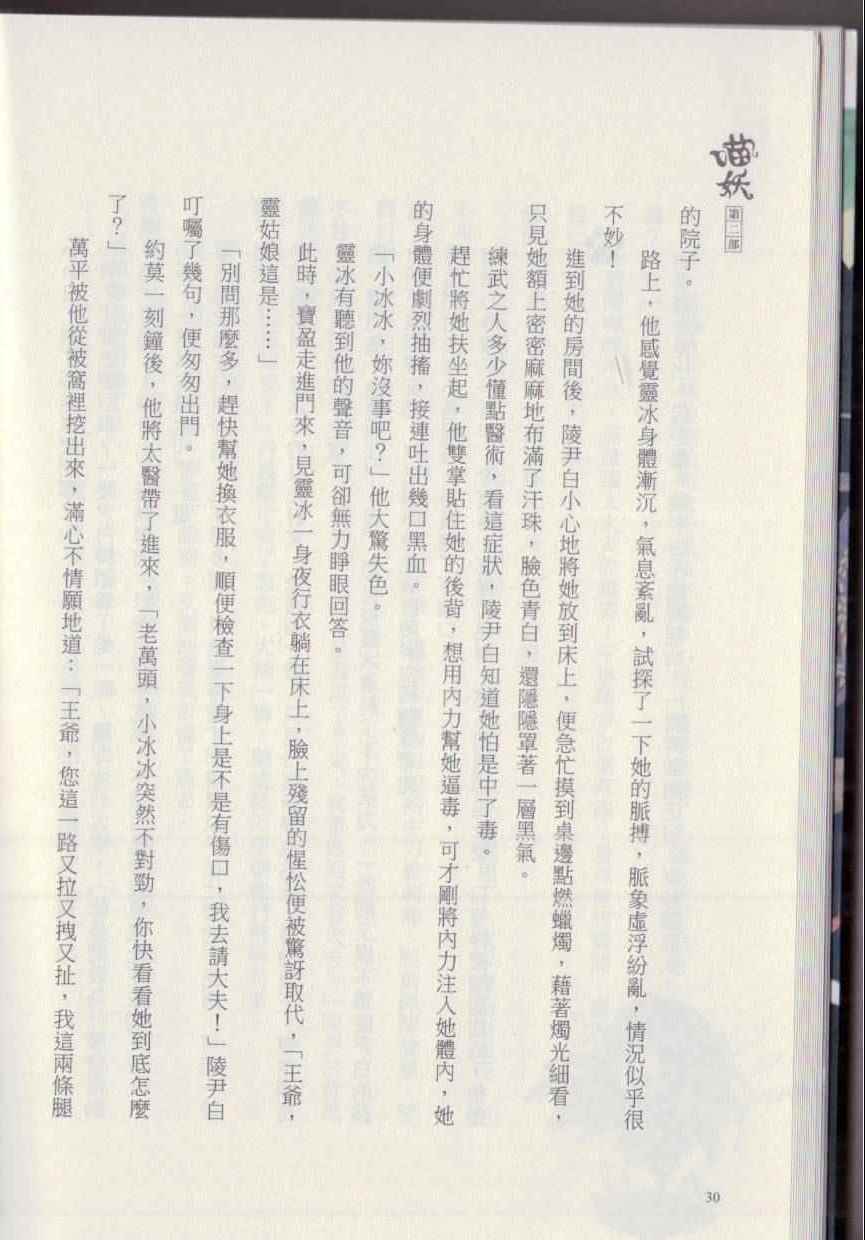 喵妖
第二部
的院子。
路上，他感覺靈冰身體漸沉，氣息紊亂，試探了一下她的脈搏，脈象虛浮紛亂，情況似乎很
不妙！
進到她的房間後，陵尹白小心地將她放到床上，便急忙摸到桌邊點燃蠟燭，藉著燭光細看，
只見她額上密密麻麻地布滿了汗珠，臉色青白，還隱隱罩著一層黑氣。
練武之人多少懂點醫術，看這症狀，陵尹白知道她怕是中了毒。
趕忙將她扶坐起，他雙掌貼住她的後背，想用內力幫她逼毒，可才剛將內力注入她體內，她
的身體便劇烈抽搐，接連吐出幾口黑血。
「小冰冰，妳沒事吧？」他大驚失色。
靈冰有聽到他的聲音，可卻無力睜眼回答。
此時，寶盈走進門來，見靈冰一身夜行衣躺在床上，臉上殘留的惺忪便被驚訝取代，「王爺，
靈姑娘這是……」
「別問那麼多，趕快幫她換衣服，順便檢查一下身上是不是有傷口，我去請大夫！」陵尹白
叮囑了幾句，便匆匆出門。
約莫一刻鐘後，他將太醫帶了進來，「老萬頭，小冰冰突然不對勁，你快看看她到底怎麼
了？」
萬平被他從被窩裡挖出來，滿心不情願地道：「王爺，您這一路又拉又拽又扯，我這兩條腿
30